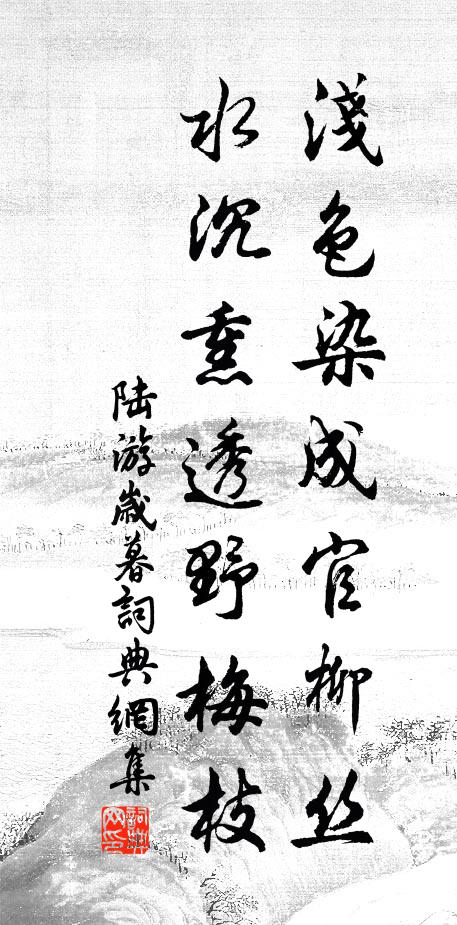 淺色染成官柳丝
水沉熏透野梅枝
陆游歲暮詞典網集